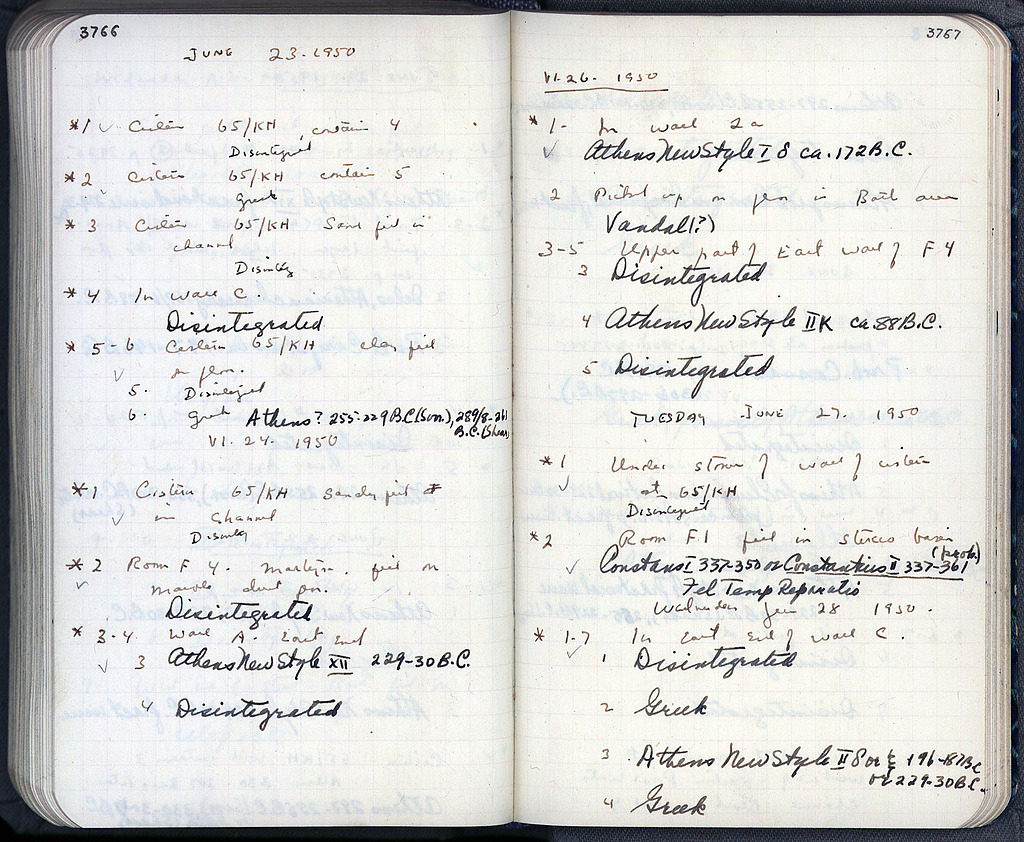 3766
JUNE 23. 1950
*1 ✓ Cistern 65/KH, contain 4
Disintegrat
*2 Cistern 65/KH contain 5
Greek
*3 Cistern 65/KH Sand fill in
channel
Disinteg
*4 In wall C.
Disintegrated
*5-6 Cistern 65/KH clay fill
✓ on floor.
5. Disintegrat
6. Greek Athens? 255-229 B.C. (Svor.), 289/8-261
B.C. (Shear)
VI. 24. 1950
*1 Cistern 65/KH Sandy fill
✓ in channel
Disinteg
*2 Room F 4. fill on
✓ marble
Disintegrated
*3-4. Wall A. East End
✓ 3 Athens New Style XII 229-30 B.C.
4 Disintegrated
3767
VI. 26. 1950
*1- In wall 2a
✓ Athens New Style I 8 ca. 172 B.C.
2 Picked up on floor in Bath area
Vandal(?)
3-5 Upper part of East wall of F 4
3 Disintegrated
4 Athens New Style II K ca. 88 B.C.
5 Disintegrated
TUESDAY JUNE 27. 1950
*1 Under stones of wall of cistern
✓ at 65/KH
Disintegrat
*2 Room F.1 fill in stucco basin
✓ Constans I 337-350 or Constantius II 337-361 (prob.)
Fel Temp Reparatio
Wednesday June 28 1950.
*1-7 In East End of wall C.
✓ 1 Disintegrated
2 Greek
3 Athens New Style II 8 or 196-87 B.C.
or 229-30 B.C.
4 Greek